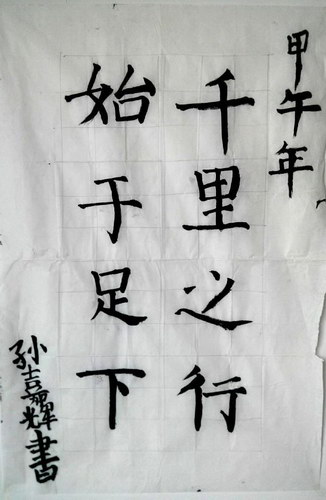 甲午年
千里之行
始于足下
孙嘉辉書